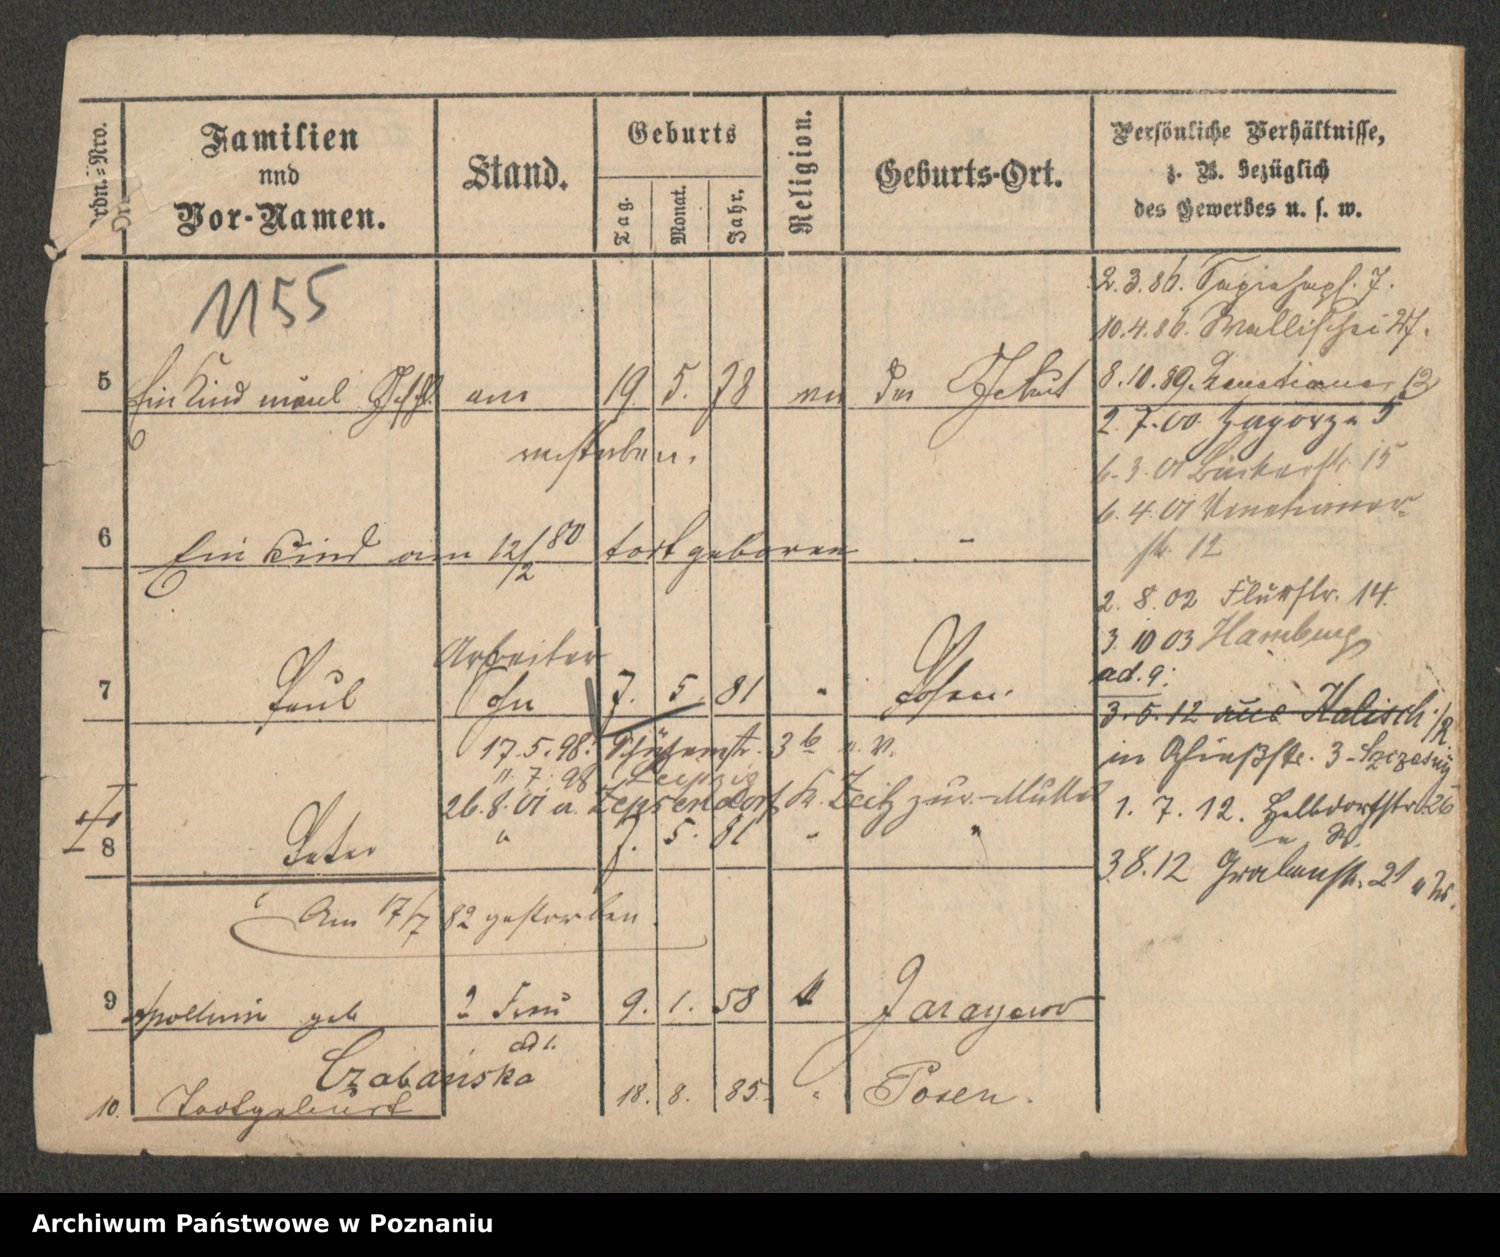 Ordn.=Nro.
Familien
und
Vor-Namen.
Stand.
Geburts
Tag.
Monat.
Jahr.
Religion.
Geburts-Ort.
Persönliche Verhältnisse,
z. B. bezüglich
des Gewerbes u. s. w.
1155
5 Ein Kind am 19. 5. 78 vor der Geburt
verstorben.
6 Ein Kind am 12/2 80 todt geboren –
Arbeiter
7 Paul Sohn 7. 5. 81 " Posen.
17.5.98. Schützenstr. 3b u. V.
11. 7. 98 Leipzig
26.8.01 a. Zepsendorf K. Zeitz zur Mutter
8 Peter " 7. 5. 81 " "
Am 17/7 82 gestorben.
9 geb 2 Frau 9. 1. 58 k Jaraczewo
ad 1.
Czabańska
10. Todtgeburt 18. 8. 85. " Posen.
2.3.86. 7.
10.4.86. Wallischei
8.10.89. Venetianer 12
2. 7. 00. Zagorze 5
6. 3. 01 Bäckerstr. 15
6. 4. 01 Venetianer-
str. 12
2. 8. 02 Flurstr. 14.
3. 10 03 Hamburg
ad. 9:
3. 5. 12 aus Kalisch
in Schießstr. 3
1. 7. 12. Helldorfstr. 26
3. 8. 12 Grabenstr. 21
Archiwum Państwowe w Poznaniu